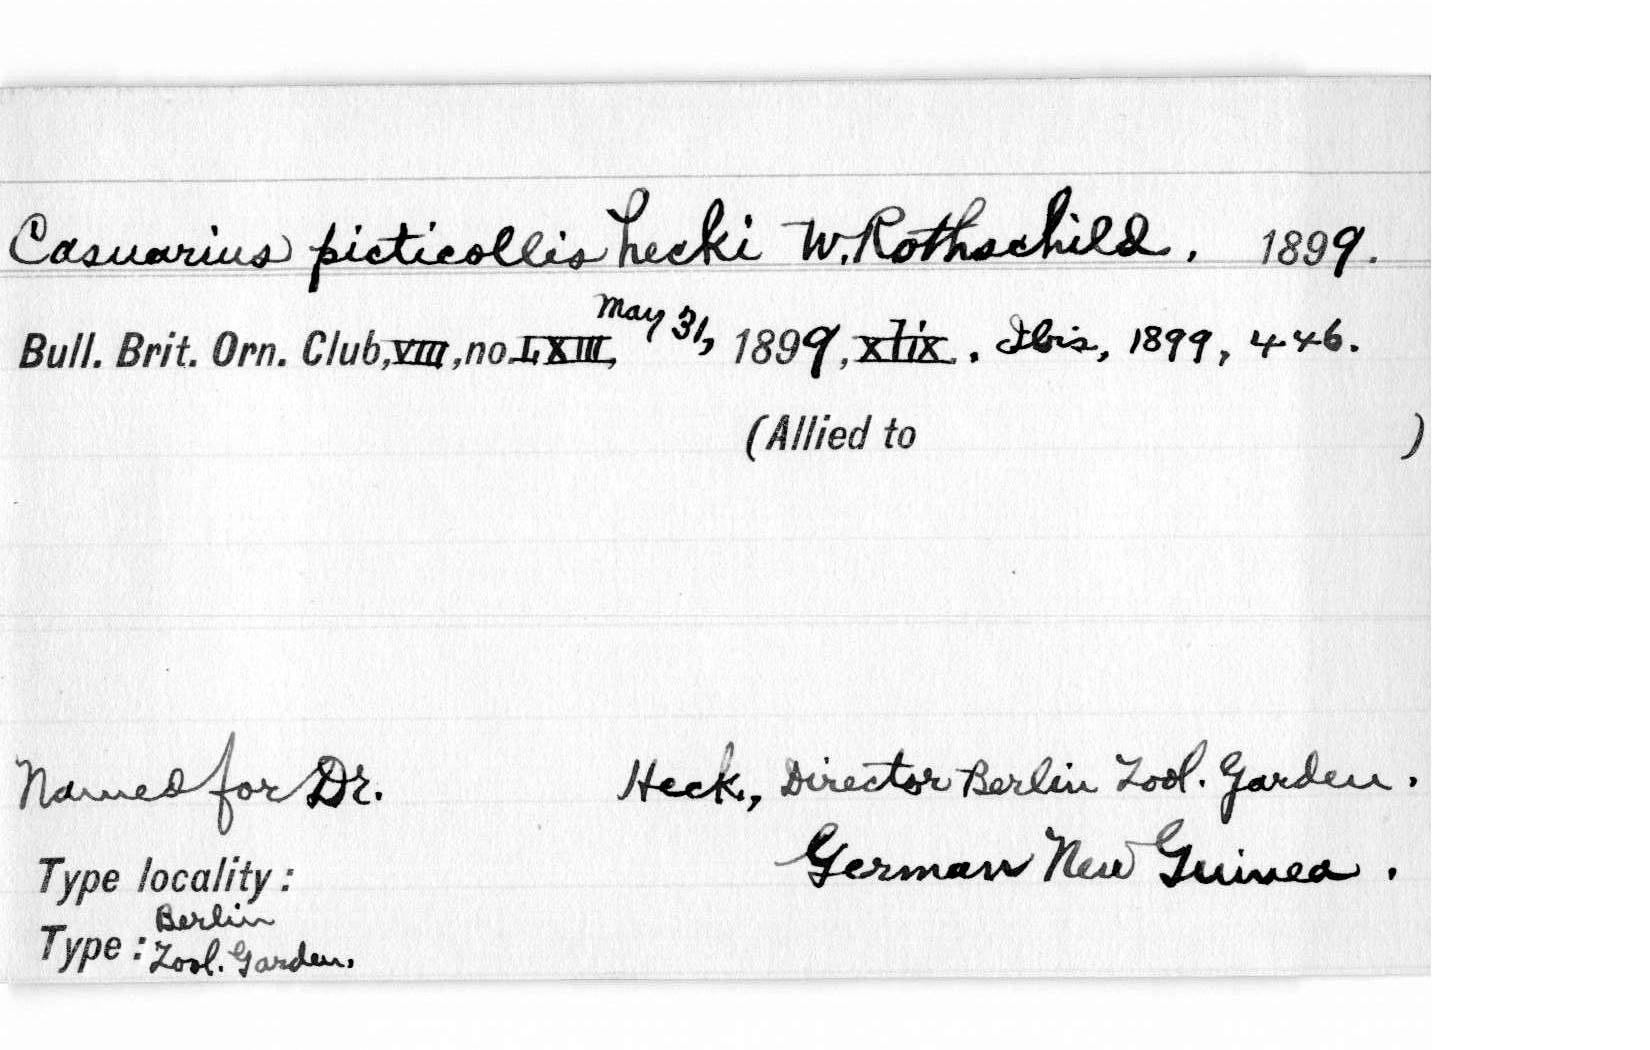 Casuarius picticollis hecki W. Rothschild. 1899.
Bull. Brit. Orn. Club, VIII, no. LXIII, May 31, 1899, xlix. Ibis, 1899, 446.
(Allied to )
Named for Dr. Heck, Director Berlin Zool. Garden.
Type locality: German New Guinea.
Type: Berlin
Zool. Garden.